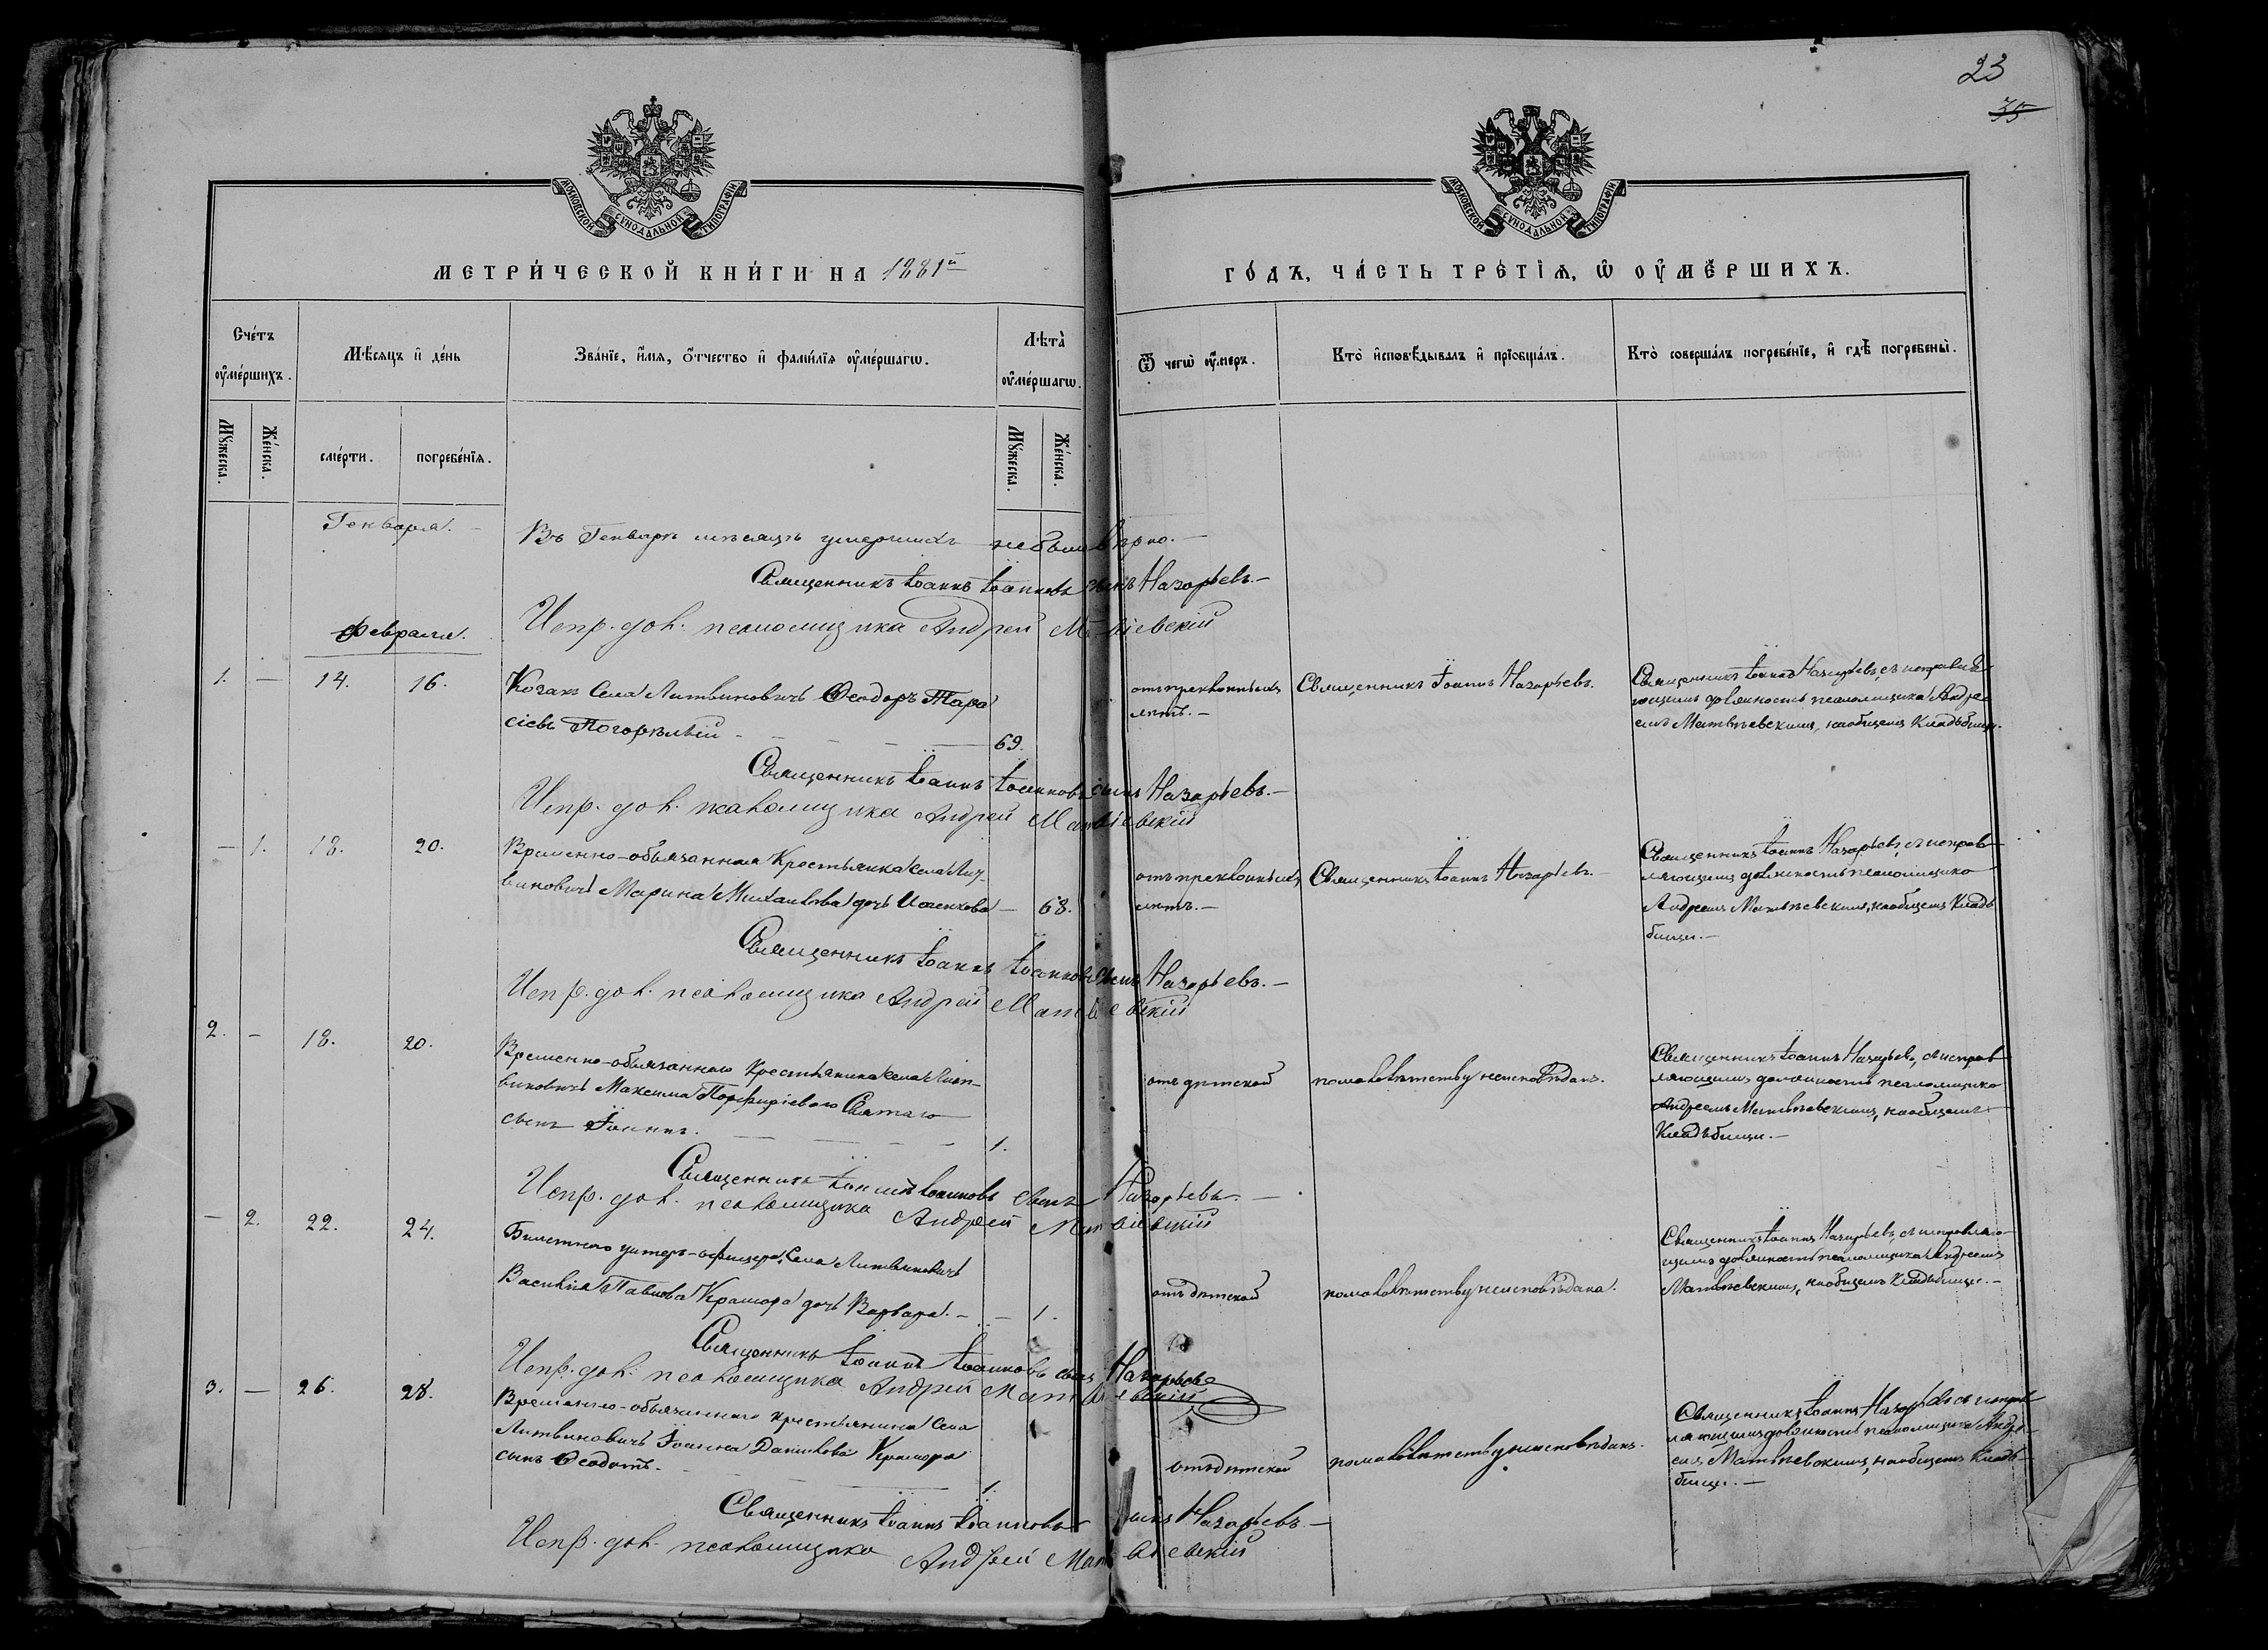 23
35
МОСКОВСКОЙ СѴНОДАЛЬНОЙ ТИПОГРАФІИ
МОСКОВСКОЙ СѴНОДАЛЬНОЙ ТИПОГРАФІИ
МЕТРИ́ЧЕСКОЙ КНИ́ГИ НА 1881й
ГО́ДЪ, ЧА́СТЬ ТРЕ́ТЇѦ, Ѡ ОУ҆МЕ́РШИХЪ.
Сче́тъ оу҆ме́ршихъ.
Мѣ́сѧцъ и҆ де́нь
Зва́нїе, и҆́мѧ, ѻ҆́тчество и҆ фами́лїѧ оу҆ме́ршагѡ.
Лѣта̀ оу҆ме́ршагѡ.
Ѿ чегѡ̀ оу҆́меръ.
Кто̀ и҆сповѣ́дывалъ и҆ прїобща́лъ.
Кто̀ соверша́лъ погребе́нїе, и҆ гдѣ̀ погребены̀.
Мꙋ́жеска.
Же́нска.
сме́рти.
погребе́нїѧ.
Мꙋ́жеска.
Же́нска.
Генваря.
Въ Генварѣ мѣсяцѣ умершихъ небыло Вѣрно.
Священникъ Іоаннъ Іоанновъ сынъ Назарьевъ.
Испр. дол. псаломщика Андрей Матвіевскій
Февраля.
1. — 14. 16.
Козакъ Села Литвиновичъ Ѳеодоръ Тара
сіевъ Погорѣлый — 69.
отъ преклонныхъ
лѣтъ.—
Священникъ Іоаннъ Назарьевъ.
Священникъ Іоаннъ Назарьевъ, съ исправля
ющимъ должность псаломщика Андре
емъ Матвѣевскимъ, наобщемъ Кладбищѣ.
Священникъ Іоаннъ Іоанновъ сынъ Назарьевъ.—
Испр. дол. псаломщика Андрей Матвіевскій
— 1. 18. 20.
Временно-обязанная Крестьянка села Лит-
виновичъ Марина Михаилова дочь — 68.
отъ преклонныхъ
лѣтъ.—
Священникъ Іоаннъ Назарьевъ.—
Священникъ Іоаннъ Назарьевъ, съ исправ-
ляющимъ должность псаломщика
Андреемъ Матвѣевскимъ, наобщемъ Клад
бищѣ.—
Священникъ Іоаннъ Іоанновъ сынъ Назарьевъ.—
Испр. дол. псаломщика Андрей Матвіевскій
2. — 18. 20.
Временно-обязаннаго Крестьянина села Лит-
виновичъ Максима Порфиріеваго Святаго
сынъ Іоаннъ. — 1.
отъ дѣтской
помаловѣтству неисповѣданъ.
Священникъ Іоаннъ Назарьевъ, съ исправ
ляющимъ должность псаломщика
Андреемъ Матвѣевскимъ, наобщемъ
Кладбищѣ.—
Священникъ Іоаннъ Іоанновъ сынъ Назарьевъ.—
Испр. дол. псаломщика Андрей Матвіевскій
— 2. 22. 24.
Билетнаго унтеръ-офицера, Села Литвиновичъ
Василія Павлова Крамора дочь Варвара.— 1.
отъ дѣтской
помаловѣтству неисповѣдана.
Священникъ Іоаннъ Назарьевъ, съ исправляю-
щимъ должность псаломщика Андреемъ
Матвѣевскимъ, наобщемъ Кладбищѣ.—
Священникъ Іоаннъ Іоанновъ сынъ Назарьевъ
Испр. дол. псаломщика Андрей Матвіевскій
3. — 26. 28.
Временно-обязаннаго крестьянина Села
Литвиновичъ Іоанна Данилова Крамора
сынъ Ѳеодотъ. — 1.
отъ дѣтской
помаловѣтству неисповѣданъ.
Священникъ Іоаннъ Назарьевъ съ исправ
ляющимъ должность псаломщика Андре
емъ Матвѣевскимъ, наобщемъ Клад-
бищѣ.—
Священникъ Іоаннъ Іоанновъ сынъ Назарьевъ.—
Испр. дол. псаломщика Андрей Матвіевскій